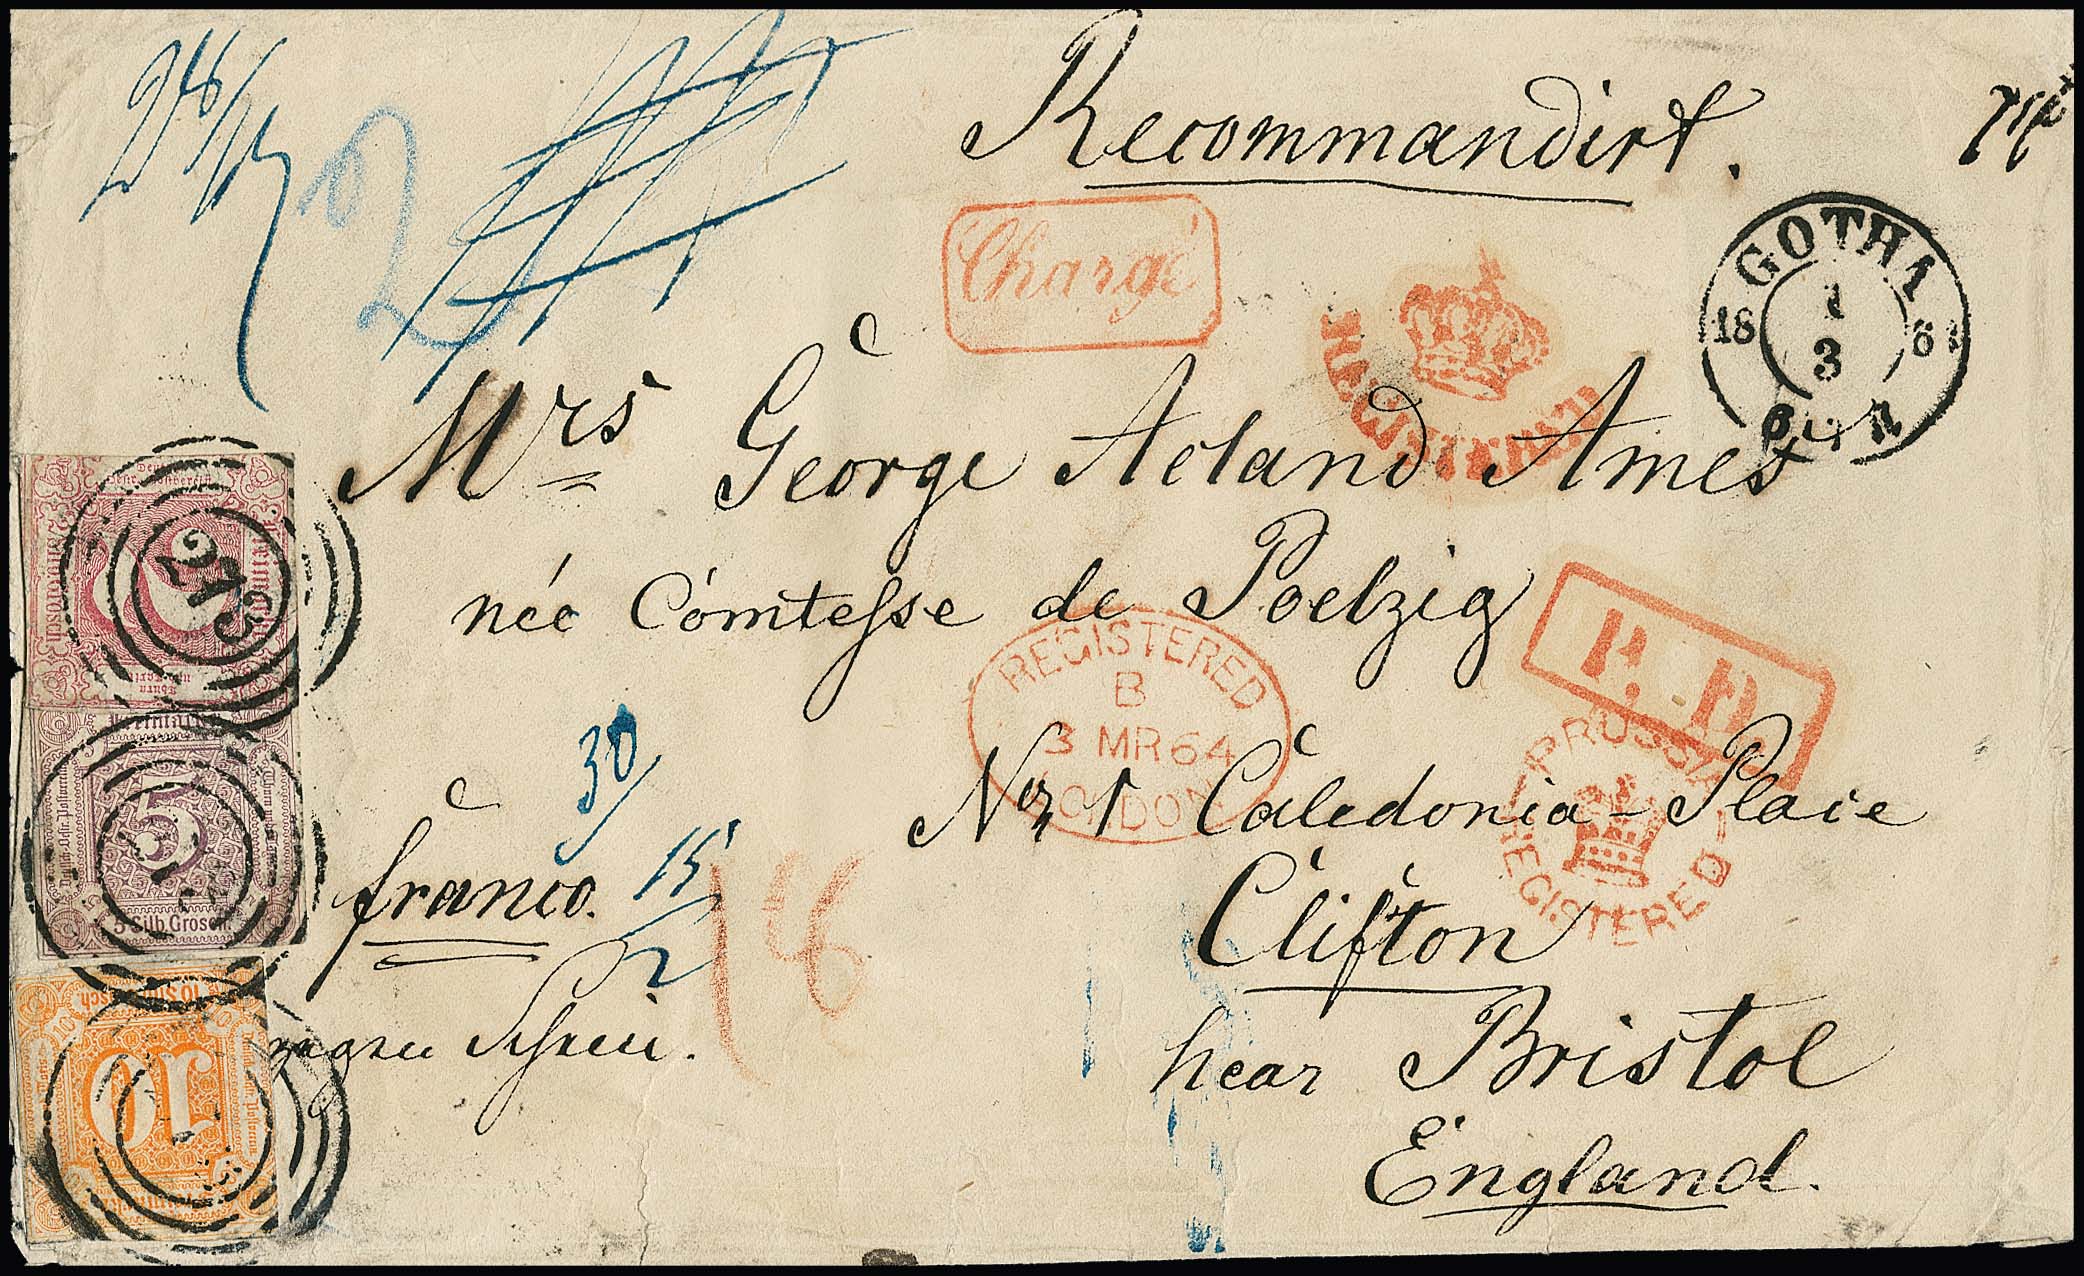 Recommandirt.
Chargé
GOTHA
1
18 64
3
REGISTERED
Mrs George Acland Ames
273
née Comtesse de Poelzig
P.D.
REGISTERED
B
3 MR 64
LONDON
PRUSSIA
REGISTERED
30
No 1 Caledonia-Place
franco.
15
2
16
5
5 Silb. Grosch.
Clifton
gegen Schein.
near Bristol
10
England.
2